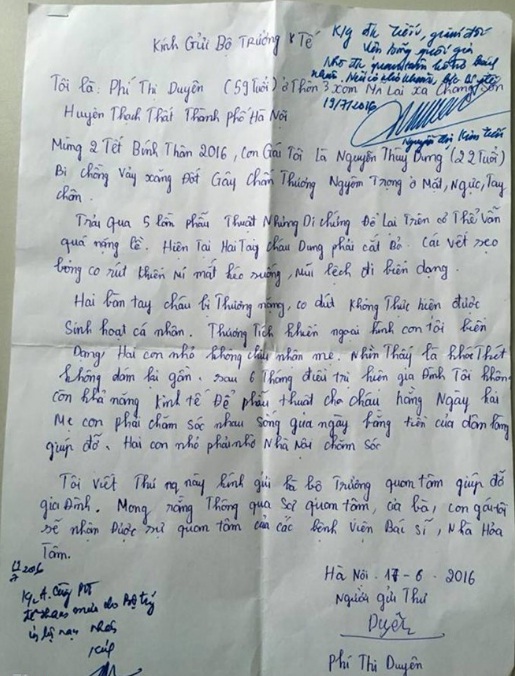 Kính Gửi Bộ Trưởng Y Tế
K/g đ/c Tiến, giám đốc
19/7/2016
Nguyễn Thị Kim Tiến
Tôi là: Phí Thị Duyên (59 Tuổi) ở Thôn 3 xóm Mả Lai xã Chàng Sơn
Huyện Thạch Thất Thành phố Hà Nội
Mùng 2 Tết Bính Thân 2016, Con Gái Tôi là Nguyễn Thùy Dung (22 Tuổi)
Bị chồng Vẩy xăng Đốt Gây Chấn Thương Nghiêm Trọng ở Mắt, Ngực, Tay
chân.
Trải Qua 5 lần phẫu Thuật Nhưng Di chứng Để Lại Trên cơ Thể vẫn
quá nặng lề. Hiện Tại Hai Tai cháu Dung phải cắt Bỏ. Các vết sẹo
bỏng co rút khiến mí mắt kéo xuống, mũi lệch đi biến dạng.
Hai bàn tay cháu bị Thương nặng, co dứt Không Thực hiện được
Sinh hoạt cá nhân. Thương Tích khiến ngoại hình con tôi biến
Dạng Hai con nhỏ không chịu nhận mẹ. Nhìn Thấy là khóc Thét
không dám lại gần. sau 6 Tháng điều trị hiện gia Đình Tôi không
còn khả năng kinh tế Để phẫu thuật cho cháu hàng Ngày hai
Mẹ con phải chăm sóc nhau sống qua ngày bằng tiền của dân làng
giúp đỡ. Hai con nhỏ phải nhờ Nhà Nội chăm sóc
Tôi viết Thư này kính gửi bà bộ Trưởng quan tâm giúp đỡ
gia Đình. Mong rằng Thông qua Sự quan tâm, của bà, con gái tôi
sẽ nhận Được sự quan tâm của các bệnh viện Bác sĩ, Nhà Hảo
Tâm.
Hà Nội. 17-6-2016
Người gửi Thư
Duyên
Phí Thị Duyên